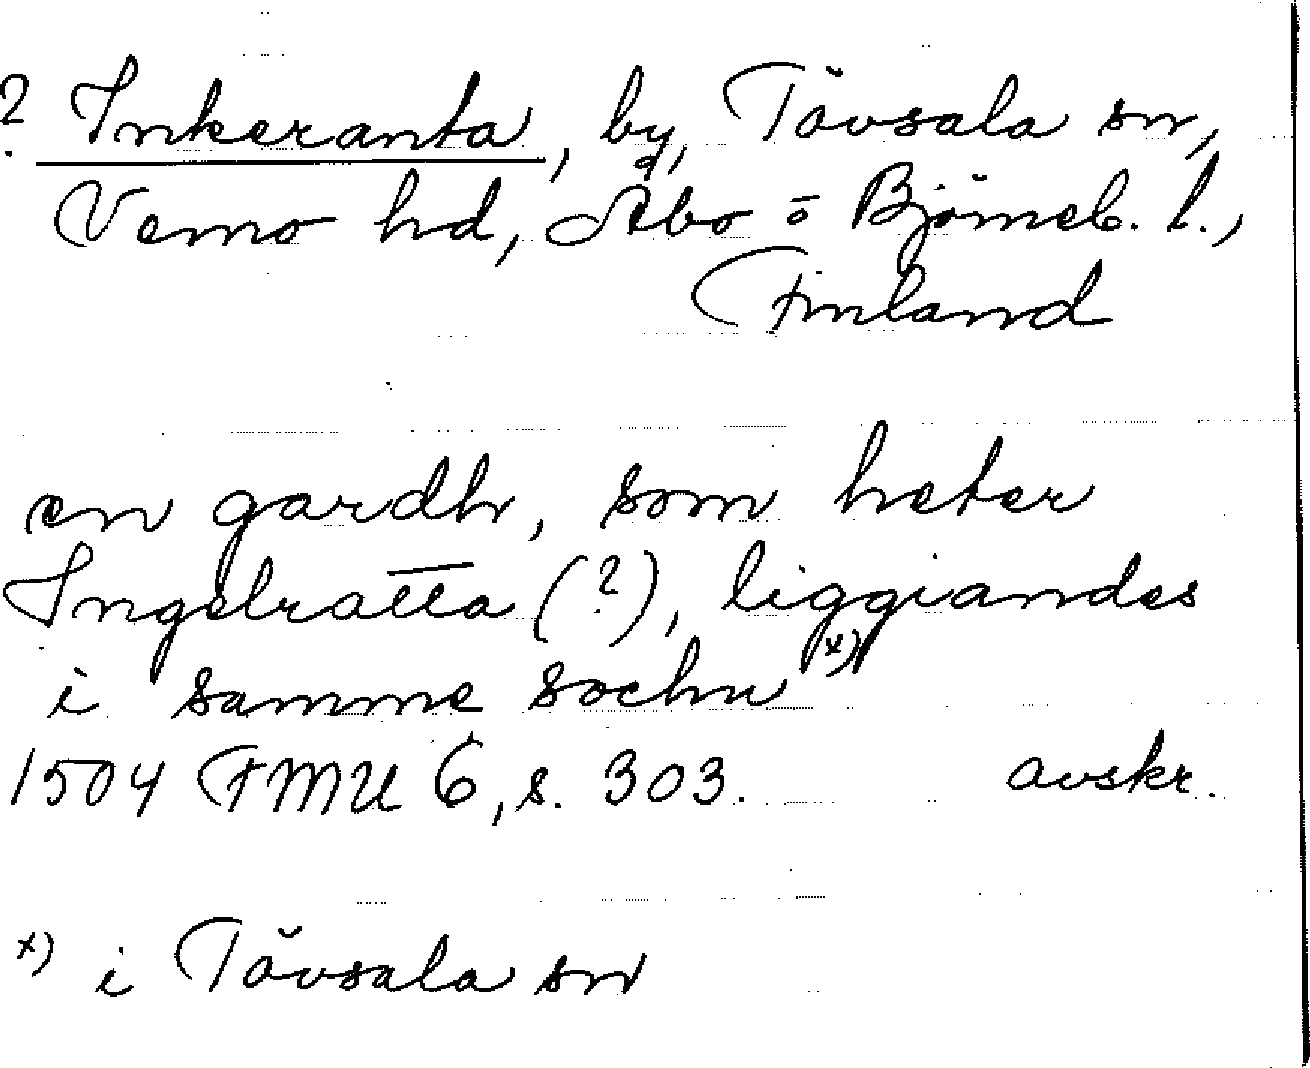 ? Inkeranta, by, Tövsala sn,
Vemo hd, Åbo o Björneb. l.,
Finland
en gardh, som heter
Ingelratta (?), liggiandes
i samme sochn x)
1504 FMU 6, s. 303. avskr.
x) i Tövsala sn